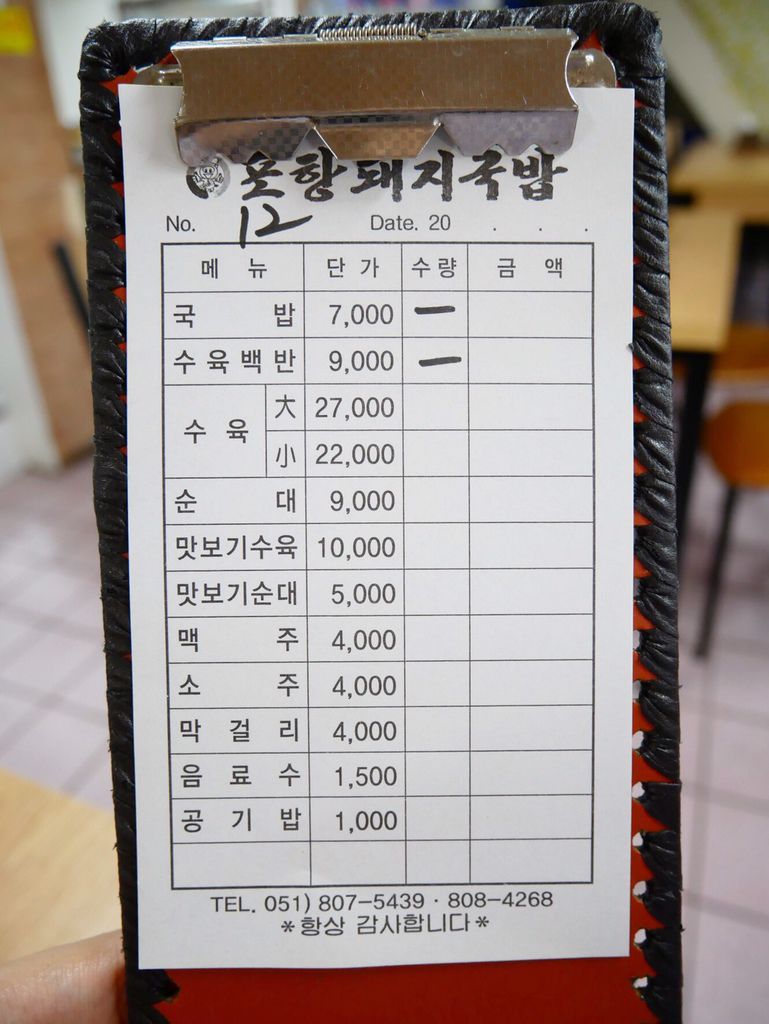 포항돼지국밥
No. 12 Date. 20 . . .
메 뉴 단 가 수량 금 액
국 밥 7,000 一
수육백반 9,000 一
수 육 大 27,000
小 22,000
순 대 9,000
맛보기수육 10,000
맛보기순대 5,000
맥 주 4,000
소 주 4,000
막 걸 리 4,000
음 료 수 1,500
공 기 밥 1,000
TEL. 051) 807-5439 · 808-4268
*항상 감사합니다*